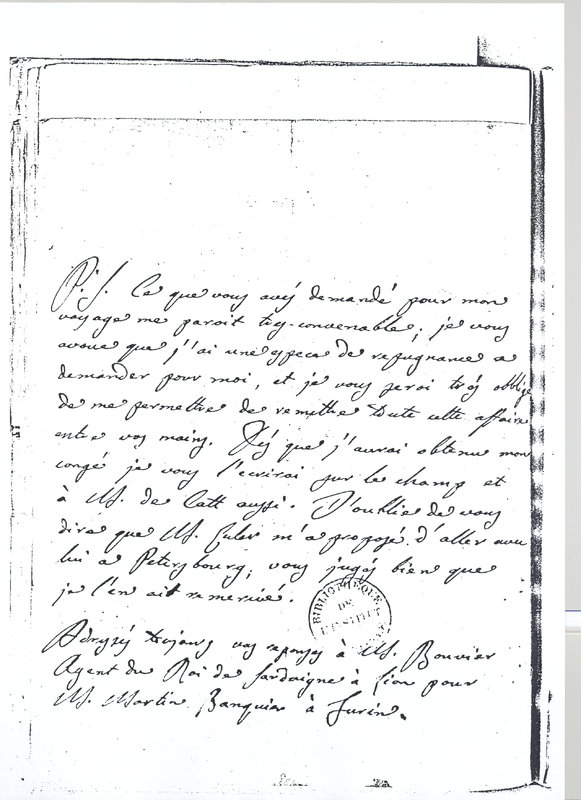 P. S. Ce que vous avés demandé pour mon
voyage me paroit très-convenable; je vous
avoue que j'ai une espece de repugnance a
demander pour moi, et je vous serai très obligé
de me permettre de remettre toute cette affaire
entre vos mains. Dès que j'aurai obtenu mon
congé je vous l'ecrirai sur le champ et
à M. de Catt aussi. J'oublie de vous
dire que M. Euler m'a proposé d'aller avec
lui a Petersbourg; vous jugés bien que
je l'en ait remercié.
BIBLIOTHEQUE
DE
L'INSTITUT
Adressés toujours vos reponses à M. Bouvier
Agent du Roi de Sardaigne à Lion pour
M. Martin Banquier à Turin.